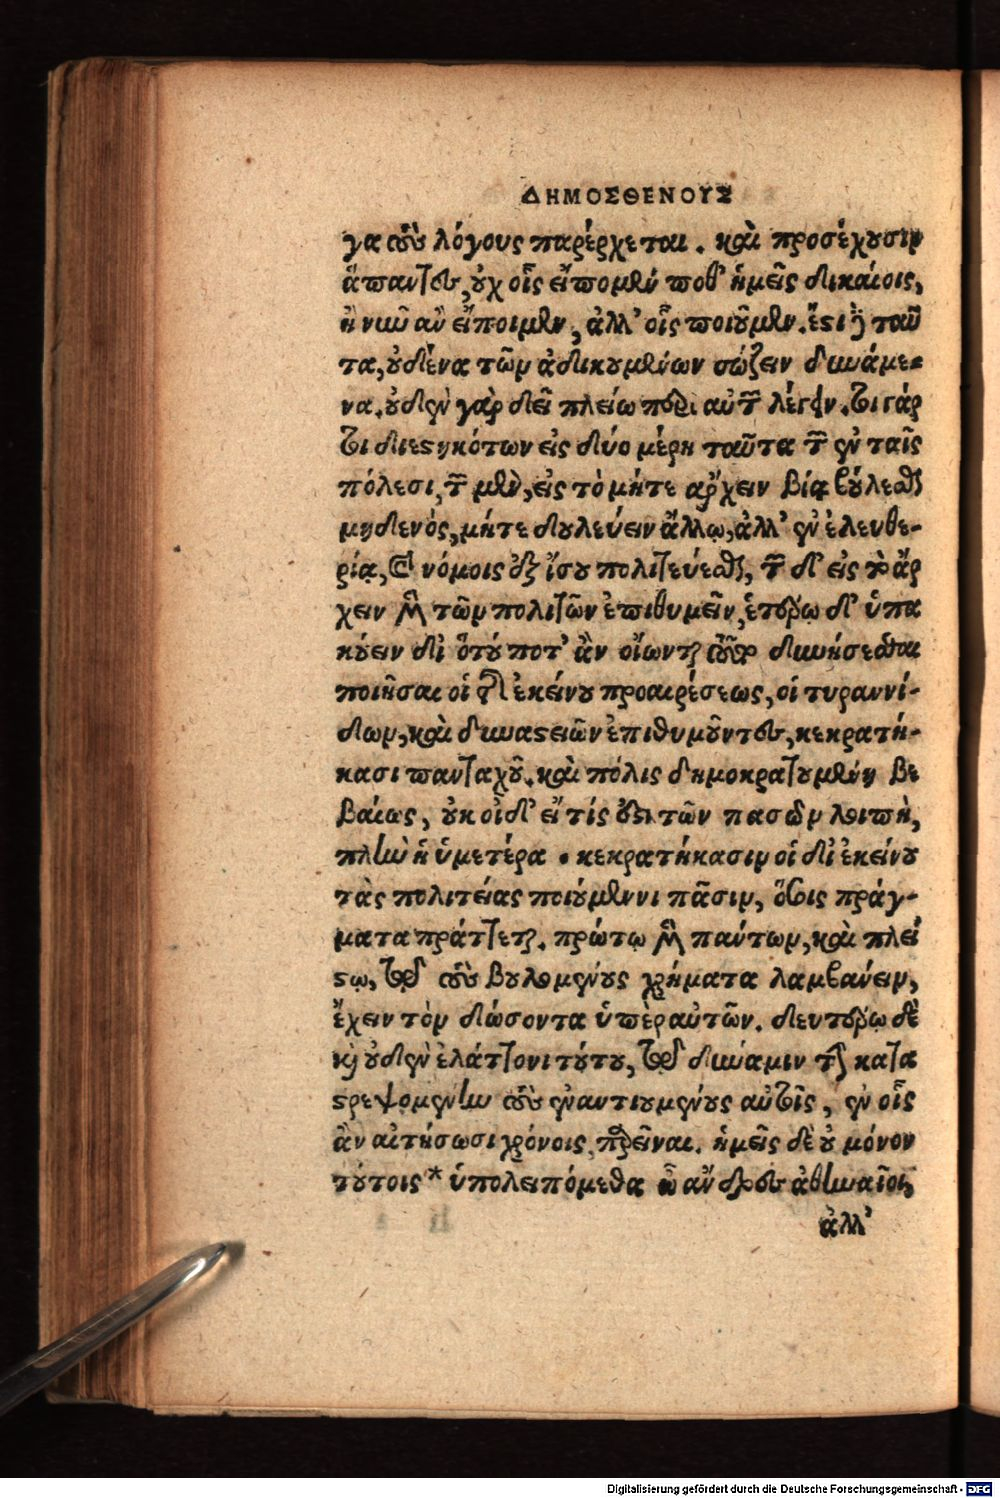 ΔΗΜΟΣΘΕΝΟΥΣ
γα τοὺς λόγους παρέρχεται. καὶ προσέχουσιν
ἅπαντες, οὐχ οἷς εἴπομεν ποθ' ἡμεῖς δικαίοις,
ἢ νῦν ἂν εἴποιμεν, ἀλλ' οἷς ποιοῦμεν. ἔστι δὲ ταῦ
τα, οὐδένα τῶν ἀδικουμένων σώζειν δυνάμε-
να. οὐδὲν γὰρ δεῖ πλείω περὶ αὐτῶν λέγειν. τι γάρ
τι διεστηκότων εἰς δύο μέρη ταῦτα τῶν ἐν ταῖς
πόλεσι, τῶν μὲν, εἰς τὸ μήτε ἄρχειν βίᾳ βούλεσθαι
μηδενὸς, μήτε δουλεύειν ἄλλῳ, ἀλλ' ἐν ἐλευθε-
ρίᾳ, καὶ νόμοις ἐξ ἴσου πολιτεύεσθαι, τῶν δ' εἰς τὸ ἄρ
χειν μὲν τῶν πολιτῶν ἐπιθυμεῖν, ἑτέρῳ δ' ὑπα
κούειν δι' ὅτου ποτ' ἂν οἴωνται τοῦτο δυνήσεσθαι
ποιῆσαι οἱ τῆς ἐκείνου προαιρέσεως, οἱ τυραννί-
δων, καὶ δυναστειῶν ἐπιθυμοῦντες, κεκρατή-
κασι πανταχοῦ. καὶ πόλις δημοκρατουμένη βε
βαίως, οὐκ οἶδ' εἴ τίς ἐστι τῶν πασῶν λοιπὴ,
πλὴν ἡ ὑμετέρα. κεκρατήκασιν οἱ δι' ἐκείνου
τὰς πολιτείας ποιούμενοι πᾶσιν, ὅσοις πράγ-
ματα πράττεται. πρώτῳ μὲν πάντων, καὶ πλεί
στῳ, τῷ τοὺς βουλομένους χρήματα λαμβάνειν,
ἔχειν τὸν δώσοντα ὑπὲρ αὐτῶν. δευτέρῳ δὲ
καὶ οὐδὲν ἐλάττονι τούτου, τῷ δύναμιν τὴν κατα
στρεψομένην τοὺς ἐναντιουμένους αὐτοῖς, ἐν οἷς
ἂν αἰτήσωσι χρόνοις, παρεῖναι. ἡμεῖς δὲ οὐ μόνον
τούτοις * ὑπολειπόμεθα ὦ ἄνδρες ἀθηναῖοι,
ἀλλ'
Digitalisierung gefördert durch die Deutsche Forschungsgemeinschaft - DFG